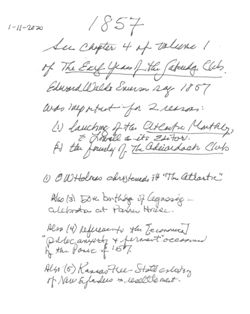 1-11-2020
1857
See Chapter 4 of Volume 1
of The Early Years of the Saturday Club.
Edward Waldo Emerson says 1857
was important for 2 reasons:
(1) launching of the Atlantic Monthly,
& Lowell as its Editor.
(2) the founding of the Adirondack Club
(1) O W Holmes christened it "The Atlantic"
Also (3) 50th birthday of Agassiz -
celebration at Parker House.
Also (4) reference to the [economic]
"public anxiety & ferment" occasioned
by the Panic of 1857.
Also (5) Kansas Free-State
of New Englanders & resettlement.